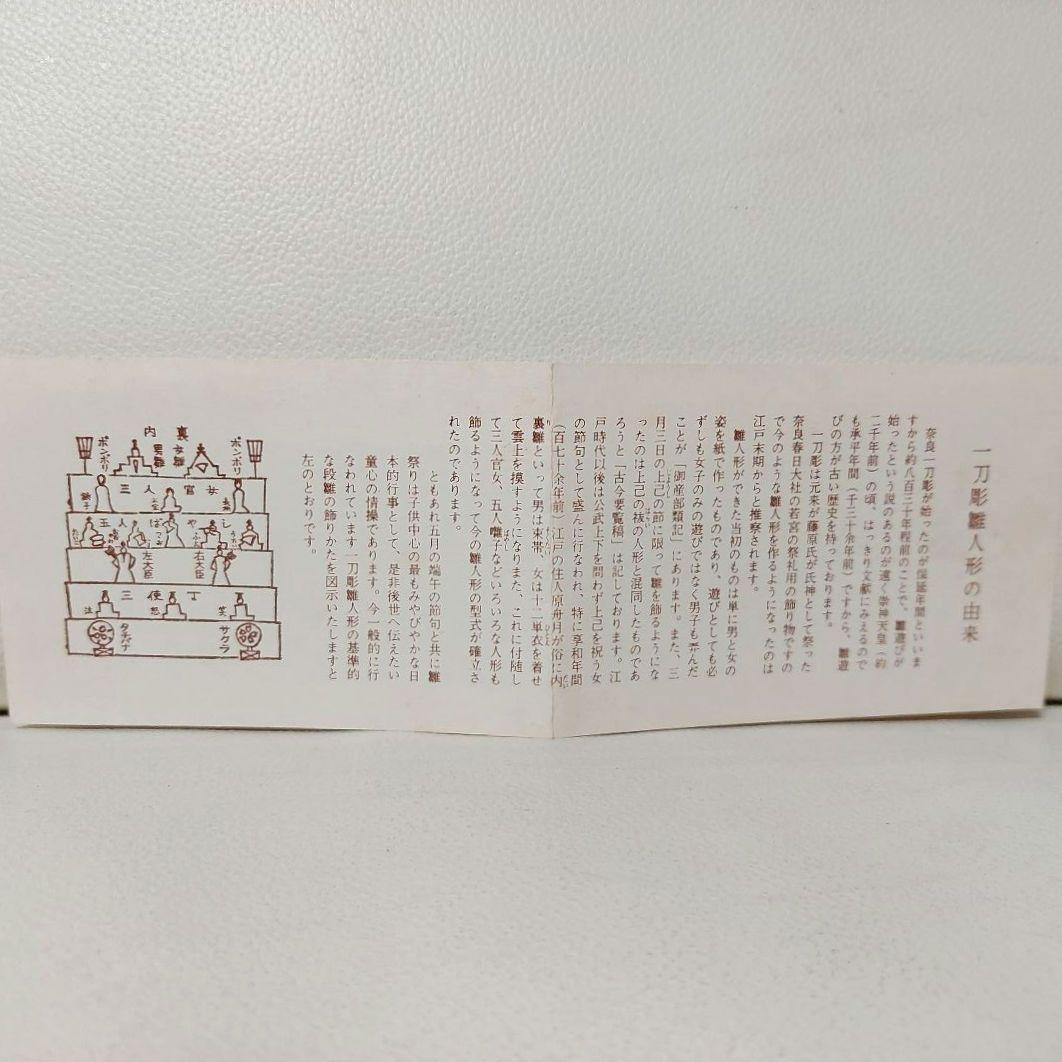 一刀彫雛人形の由来
奈良一刀彫が始ったのが保延年間といいま
すから約八百三十年程前のことで、雛遊びが
始ったという説のあるのが遠く崇神天皇（約
二千年前）の頃、はっきり文献にみえるので
も承平年間（一千三十余年前）ですから、雛遊
びの方が古い歴史を持っております。
一刀彫は元来が藤原氏が氏神として祭った
奈良春日大社の若宮の祭礼用の飾り物ですの
で今のような雛人形を作るようになったのは
江戸末期からと推察されます。
雛人形ができた当初のものは単に男と女の
姿を紙で作ったものであり、遊びとしても必
ずしも女子のみの遊びではなく男子も弄んだ
ことが「御産部類記」にあります。また、三
月三日の上己の節に限って雛を飾るようにな
ったのは上己の祓の人形と混同したものであ
ろうと「古今要覧稿」は記しております。江
戸時代以後は公武上下を問わず上己を祝う女
の節句として盛んに行なわれ、特に享和年間
（百七十余年前）江戸の住人原舟月が俗に内
裏雛といって男は束帯、女は十二単衣を着せ
て雲上を摸すようになりまた、これに付随し
て三人官女、五人囃子などいろいろな人形も
飾るようになって今の雛人形の型式が確立さ
れたのであります。
ともあれ五月の端午の節句と共に雛
祭りは子供中心の最もみやびやかな日
本的行事として、是非後世へ伝えたい
童心の情操であります。今一般的に行
なわれています一刀彫雛人形の基準的
な段雛の飾りかたを図示いたしますと
左のとおりです。
内裏
ボンボリ
男雛
女雛
ボンボリ
三人官女
五人ばやし
左大臣
右大臣
三使丁
泣
怒
笑
タチバナ
サクラ